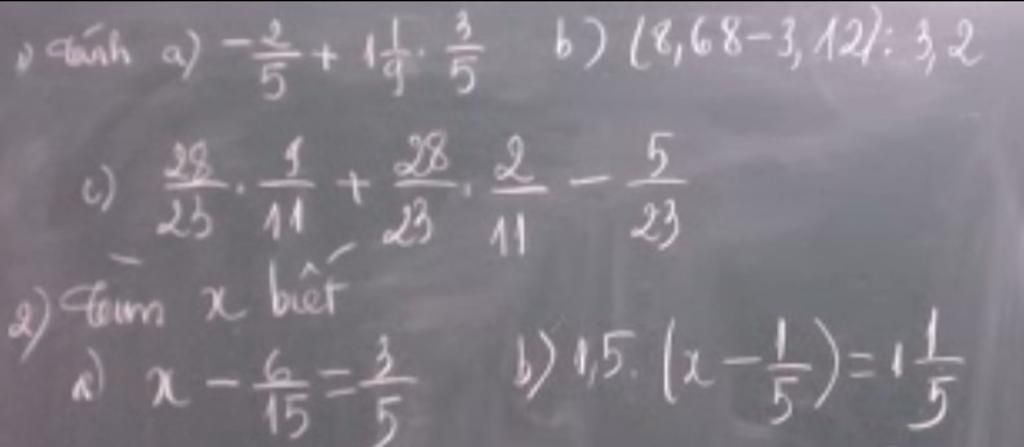 1) Tính a) -2/5 + 1 1/9 . 3/5 b) (8,68-3,12):3,2
c) 28/23 . 9/11 + 28/23 . 2/11 - 5/23
2) Tìm x biết
a) x - 6/15 = 3/5 b) 1,5. (x - 1/5) = 1 1/5